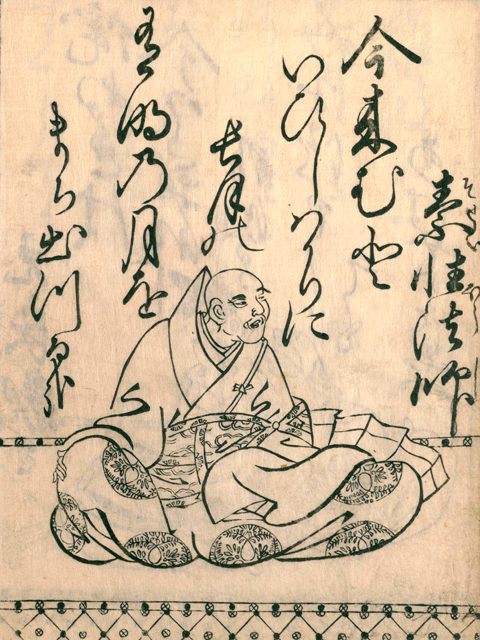 素性法師
今来むと
いひしはかりに
長月の
有明乃月を
まち出つる哉